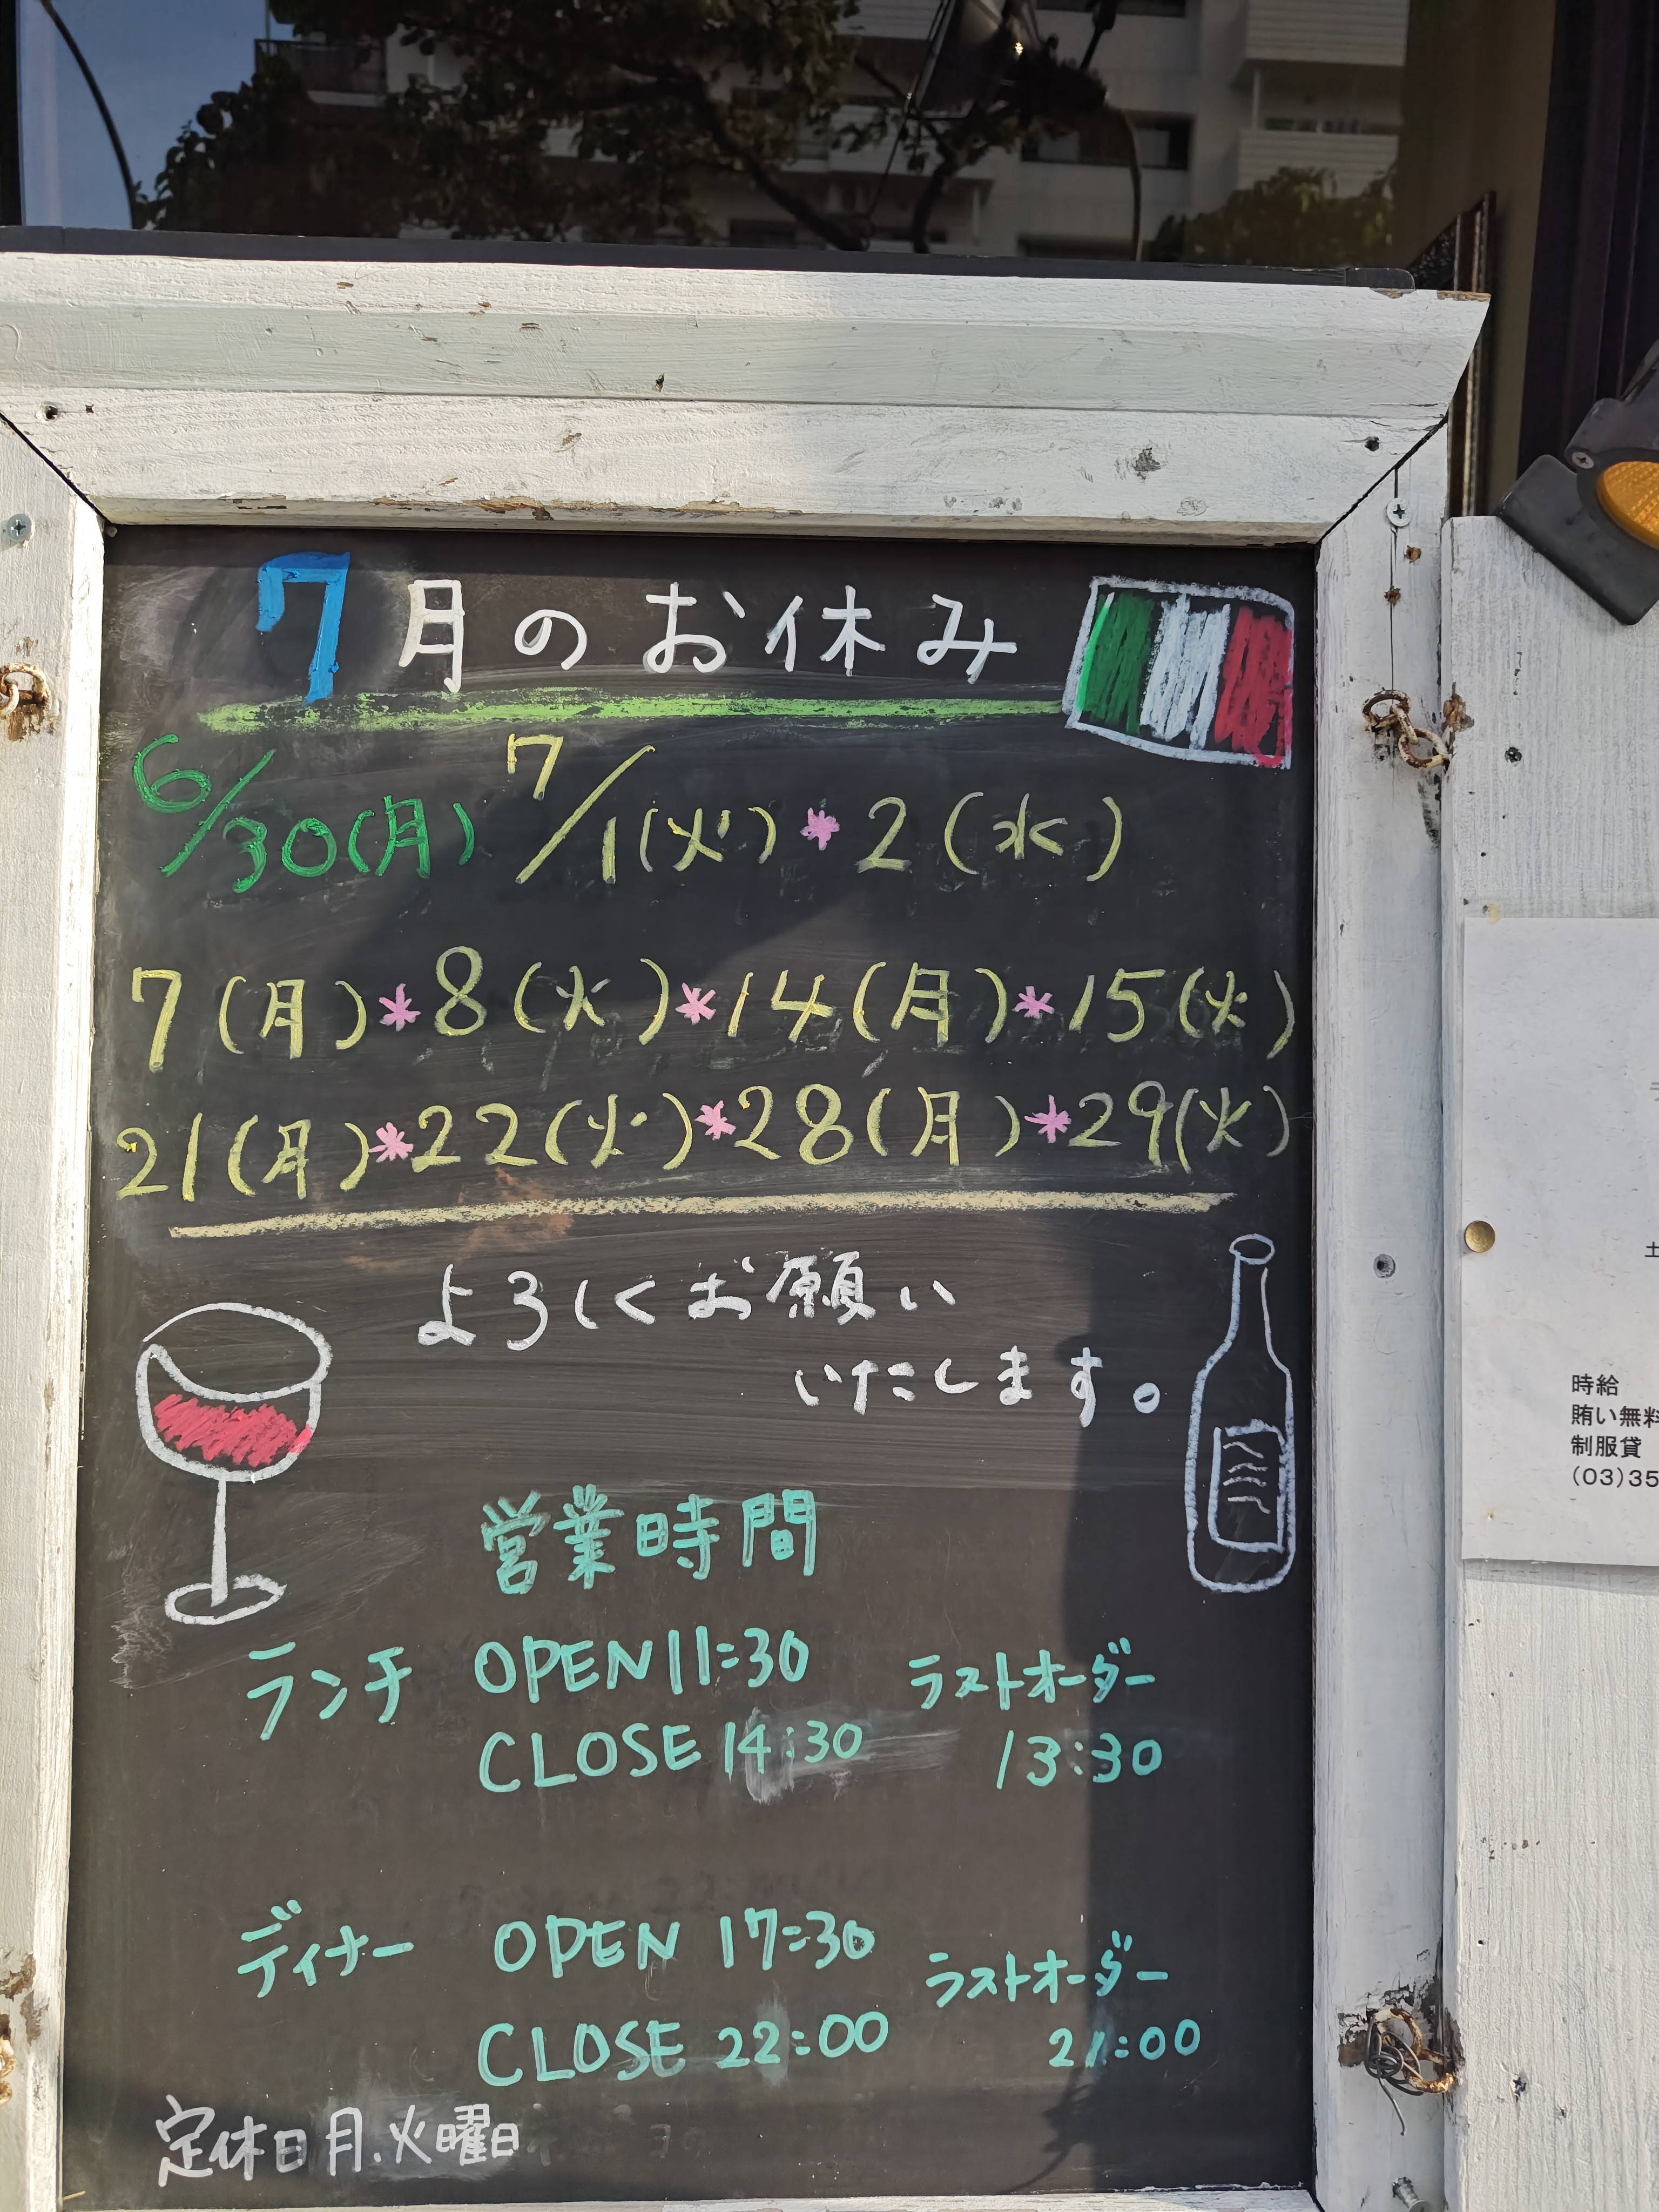 7月のお休み
6/30(月) 7/1(火)*2(水)
7(月)*8(火)*14(月)*15(火)
21(月)*22(火)*28(月)*29(火)
よろしくお願い
いたします。
営業時間
ランチ OPEN 11:30 ラストオーダー
CLOSE 14:30 13:30
ディナー OPEN 17:30 ラストオーダー
CLOSE 22:00 21:00
定休日月.火曜日
土
時給
賄い無料
制服貸
(03)35